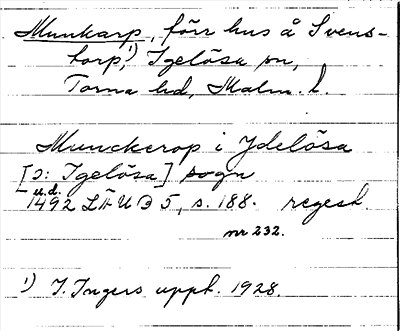 Munkarp, förr hus å Svens-
torp,¹) Igelösa sn,
Torna hd, Malm. l.
Munckerop i Ydelösa
[ɔ: Igelösa] sogn
u.d.
1492 LÄUB 5, s. 188. regest.
nr 232.
¹) I. Ingers uppt. 1928.